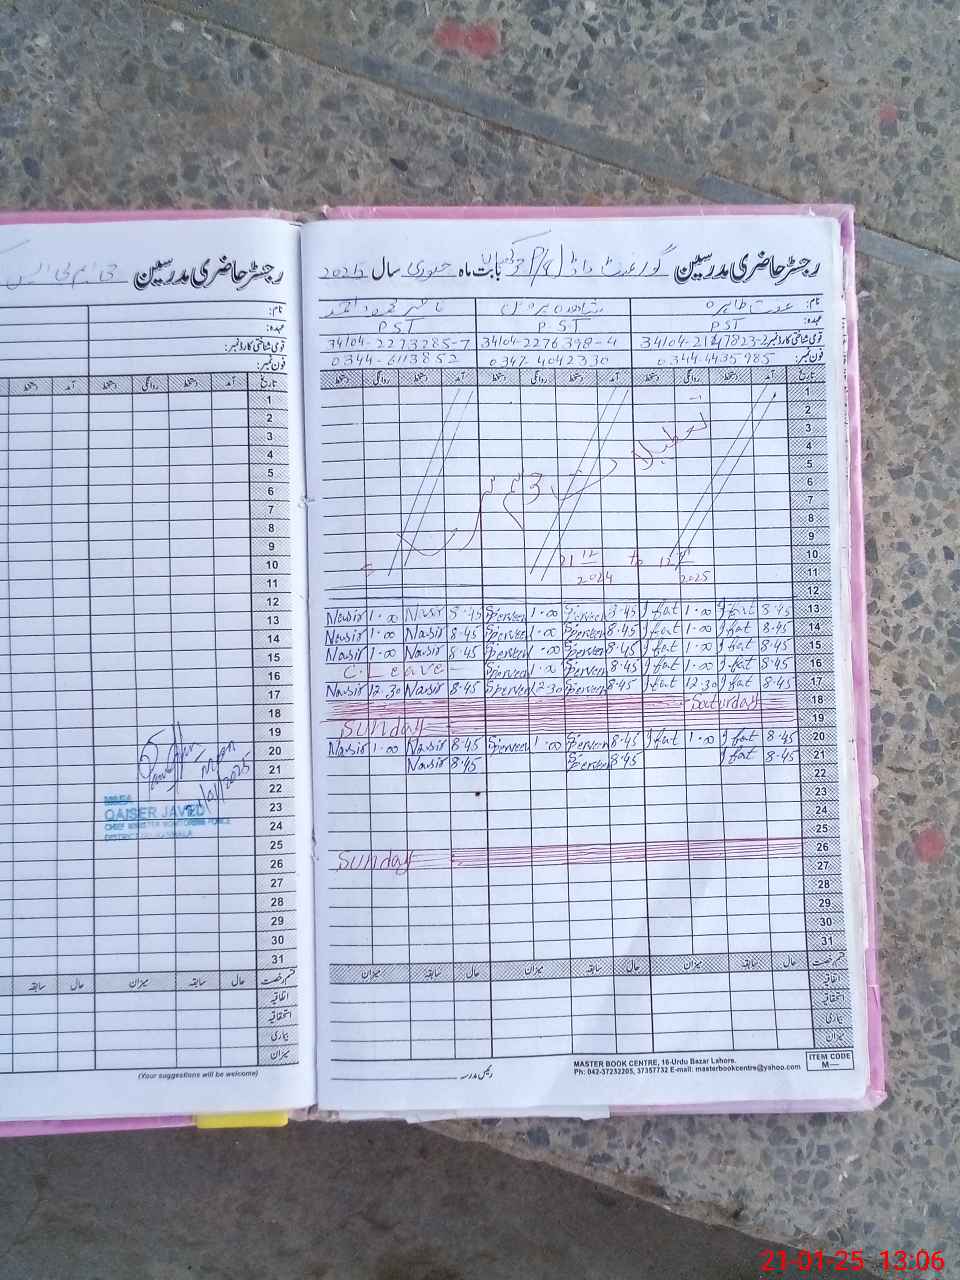 رجسٹر حاضری مدرسین
نام:
عہدہ:
قومی شناختی کارڈ نمبر:
فون نمبر:
تاریخ آمد دستخط روانگی دستخط آمد دستخط
1
2
3
4
5
6
7
8
9
10
11
12
13
14
15
16
17
18
19
20
21
22
23
24
25
26
27
28
29
30
31
2025
MEA
QAISER JAVED
CHIEF MINISTER MONITORING FORCE
قسم رخصت حال سابقہ میزان حال سابقہ
اتفاقیہ
استحقاقیہ
بیماری
میزان
(Your suggestions will be welcome)
رجسٹر حاضری مدرسین گورنمنٹ ماڈل بابت ماہ جنوری سال 2025
نام: عفت طاہرہ شاہدہ پروین ناصر محمود
عہدہ: PST PST PST
قومی شناختی کارڈ نمبر: 34104-2147823-2 34104-2276398-4 34104-2273285-7
فون نمبر: 0344-4435985 0347-4042330 0344-6113852
تاریخ آمد دستخط روانگی دستخط آمد دستخط روانگی دستخط آمد دستخط روانگی دستخط
1
2
3
4
5
6
7
8
9
تعطیلات موسم سرما
10
21 12/2024 to 12 2025
11
12
Nasir 1.00 Nasir 8.45 Sperveen 1.00 Sperveen 8.45 Ifat 1.00 Ifat 8.45 13
Nasir 1.00 Nasir 8.45 Sperveen 1.00 Sperveen 8.45 Ifat 1.00 Ifat 8.45 14
Nasir 1.00 Nasir 8.45 Sperveen 1.00 Sperveen 8.45 Ifat 1.00 Ifat 8.45 15
C. Leave Sperveen 1.00 Sperveen 8.45 Ifat 1.00 Ifat 8.45 16
Nasir 12.30 Nasir 8.45 Sperveen 12.30 Sperveen 8.45 Ifat 12.30 Ifat 8.45 17
Saturday 18
Sunday 19
Nasir 1.00 Nasir 8.45 Sperveen 1.00 Sperveen 8.45 Ifat 1.00 Ifat 8.45 20
Nasir 8.45 Sperveen 8.45 Ifat 8.45 21
22
23
24
25
Sunday 26
27
28
29
30
31
قسم رخصت حال سابقہ میزان حال سابقہ میزان حال سابقہ میزان
اتفاقیہ
استحقاقیہ
بیماری
میزان
رئیس مدرسہ
MASTER BOOK CENTRE, 16-Urdu Bazar Lahore.
Ph: 042-37232205, 37357732 E-mail: masterbookcentre@yahoo.com
ITEM CODE
M—
21-01-25 13:06